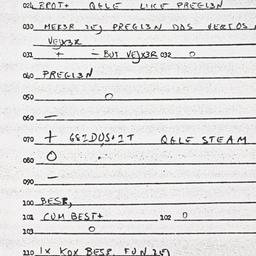 024 BPOT+ QGLE LIKE PREGL3N
030 MEK3R 2EJ PREGL3N DAS
VEJX3R
031 + - BUT VEJX3R 032 O
040 PREGL3N
050 O
060 -
070 + QGLE STEAM
080 O
090 -
100 BESP,
101 CUM BEST+ 102 O
103 O
110 1X KOX BESP. FUN 2EJ